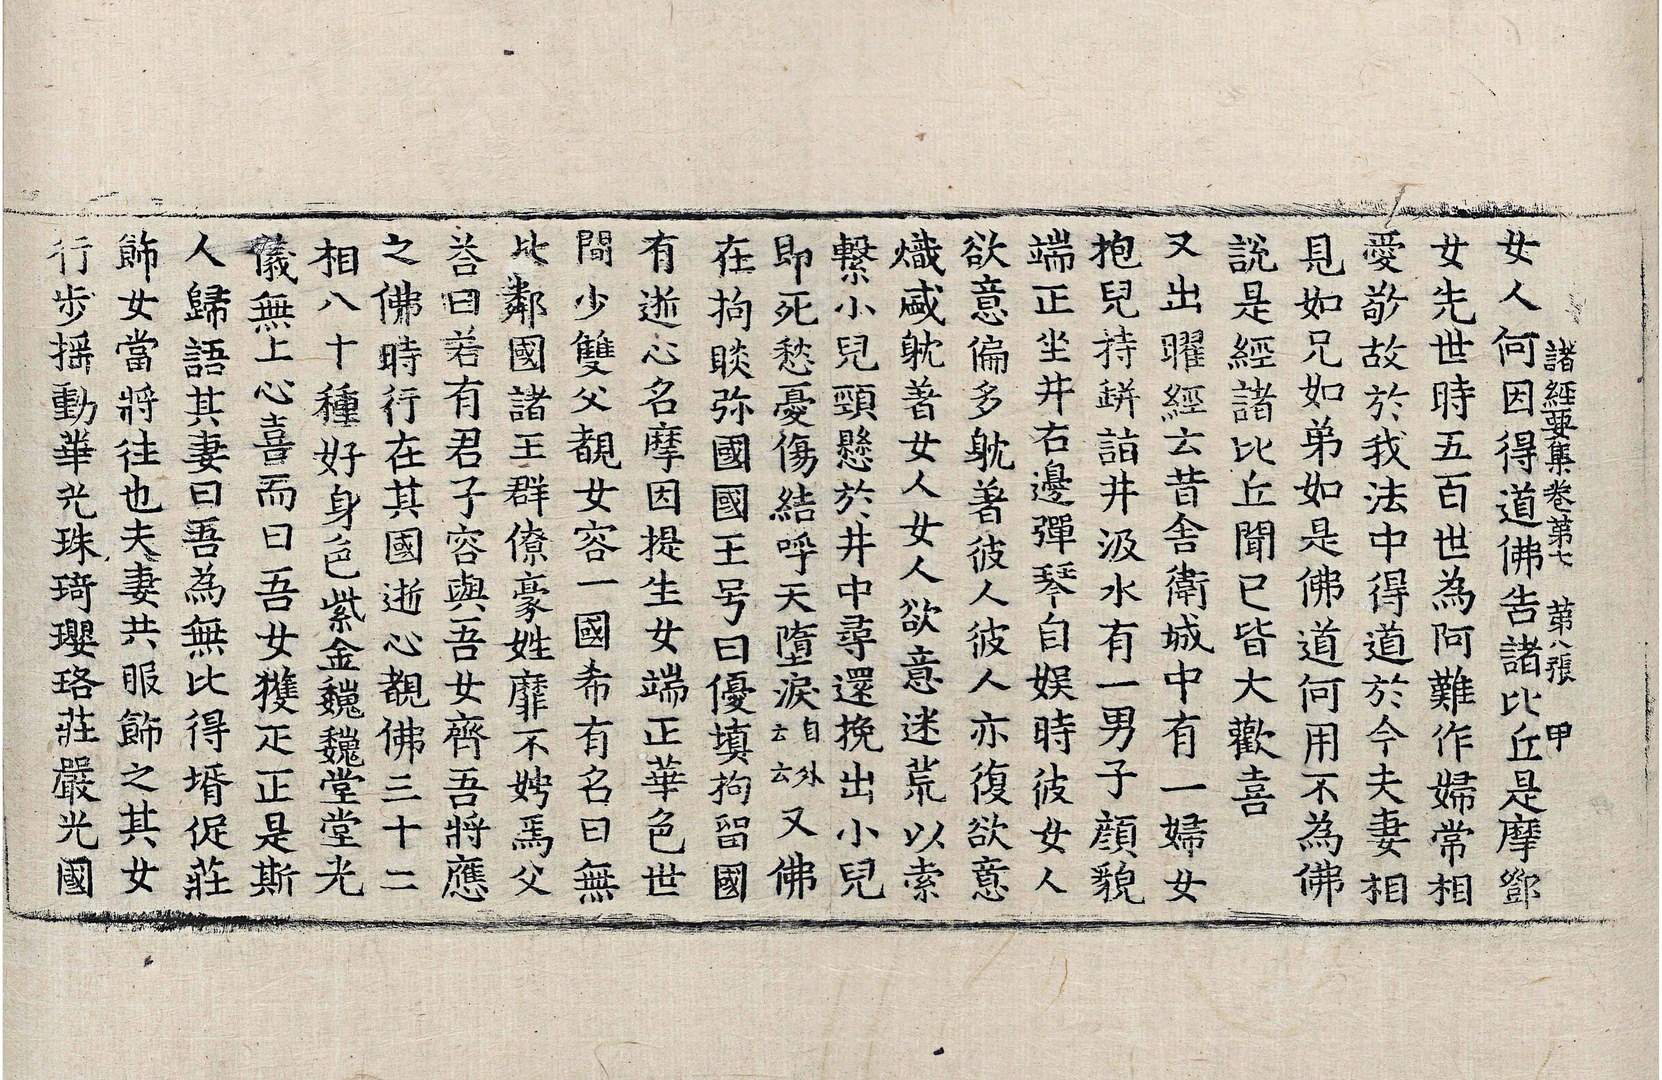 諸經要集卷第七 第八張 甲
女人何因得道佛告諸比丘是摩鄧
女先世時五百世為阿難作婦常相
愛敬故於我法中得道於今夫妻相
見如兄如弟如是佛道何用不為佛
說是經諸比丘聞已皆大歡喜
又出曜經云昔舍衛城中有一婦女
抱兒持缾詣井汲水有一男子顔貌
端正坐井右邊彈琴自娛時彼女人
欲意偏多躭著彼人彼人亦復欲意
熾盛躭著女人女人欲意迷荒以索
繫小兒頸懸於井中尋還挽出小兒
即死愁憂傷結呼天墮淚自外云云又佛
在拘睒弥國國王号曰優填拘留國
有逝心名摩因提生女端正華色世
間少雙父覩女容一國希有名曰無
比鄰國諸王群僚豪姓靡不娉焉父
荅曰若有君子容與吾女齊吾將應
之佛時行在其國逝心覩佛三十二
相八十種好身色紫金巍巍堂堂光
儀無上心喜而曰吾女獲疋正是斯
人歸語其妻曰吾為無比得壻促莊
飾女當將往也夫妻共服飾之其女
行步搖動華光珠琦瓔珞莊嚴光國